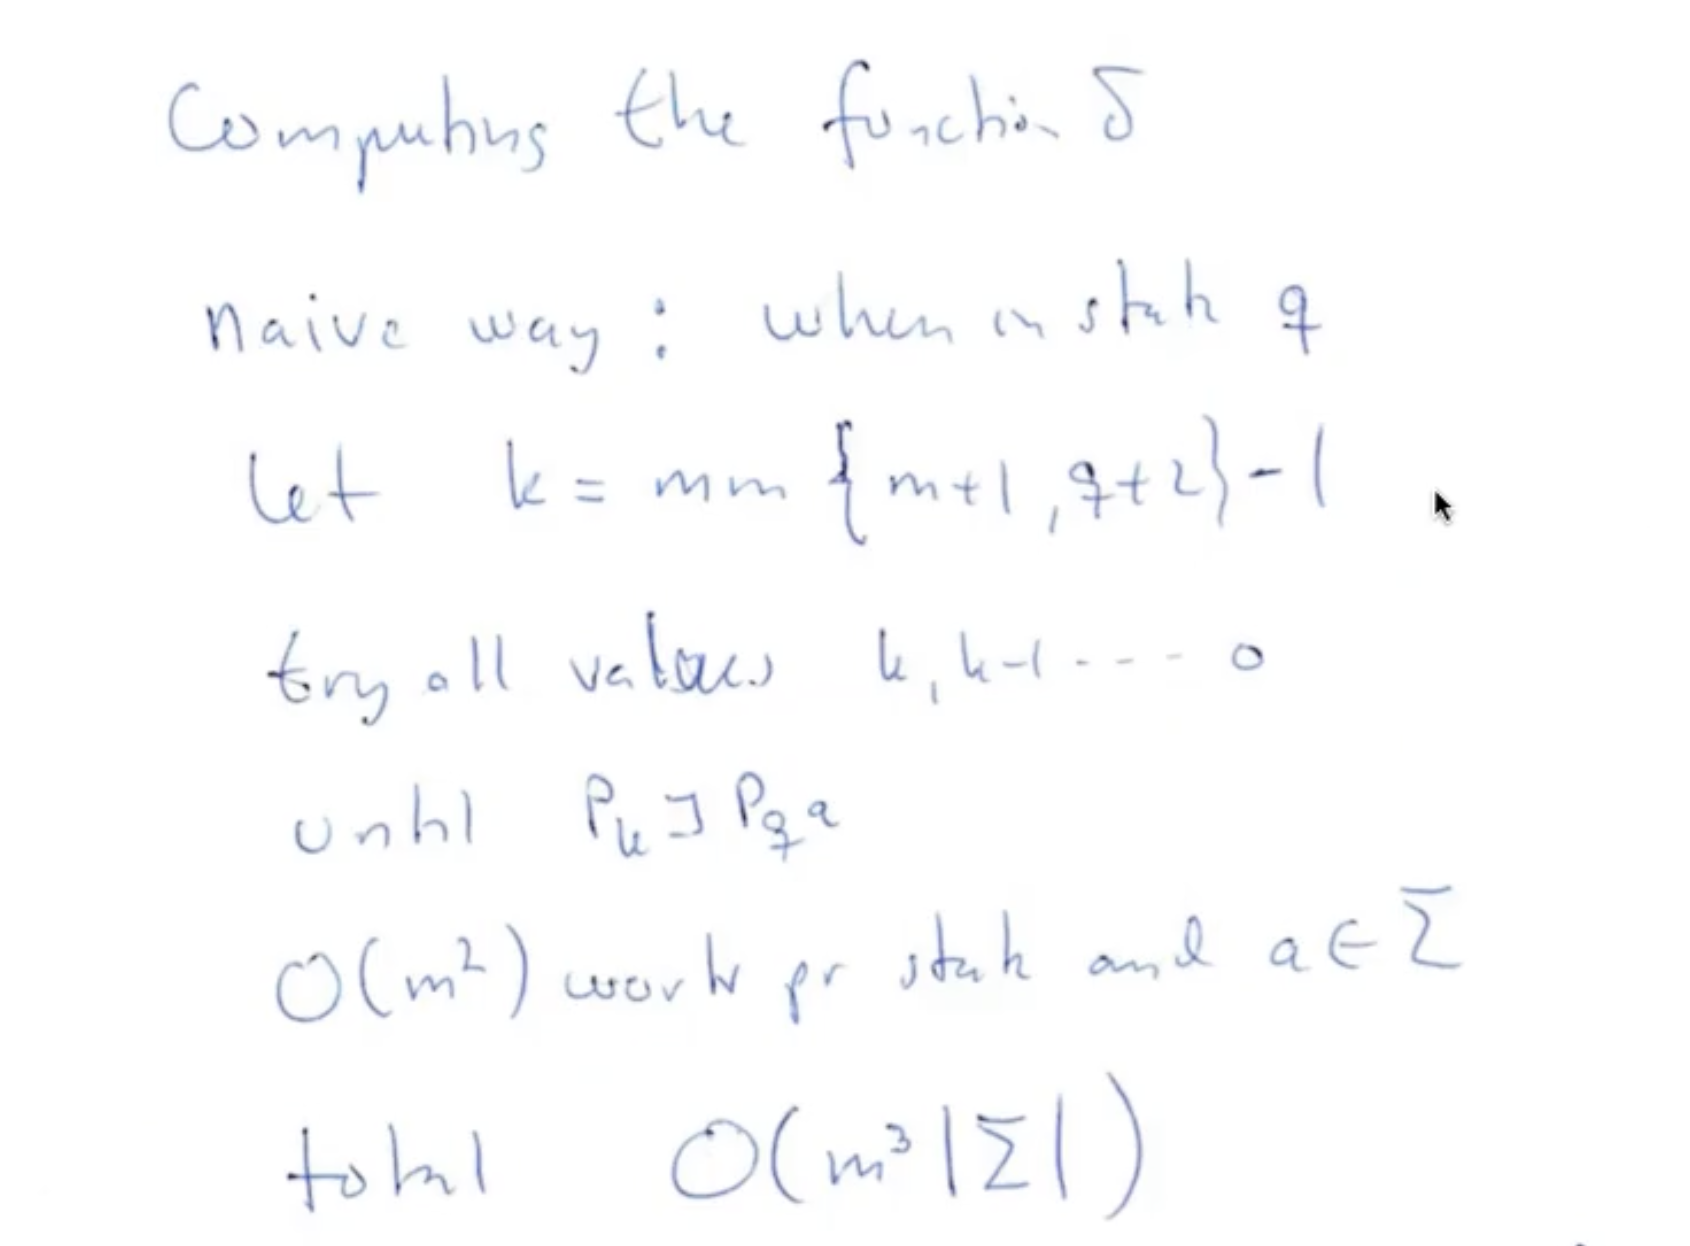 Computing the function δ
naive way: when in state q
let k = min {m+1, q+2} - 1
try all values k, k-1 ---- 0
until Pk ⊐ Pq a
O(m²) work pr state and a ∈ Σ
total O(m³ |Σ|)